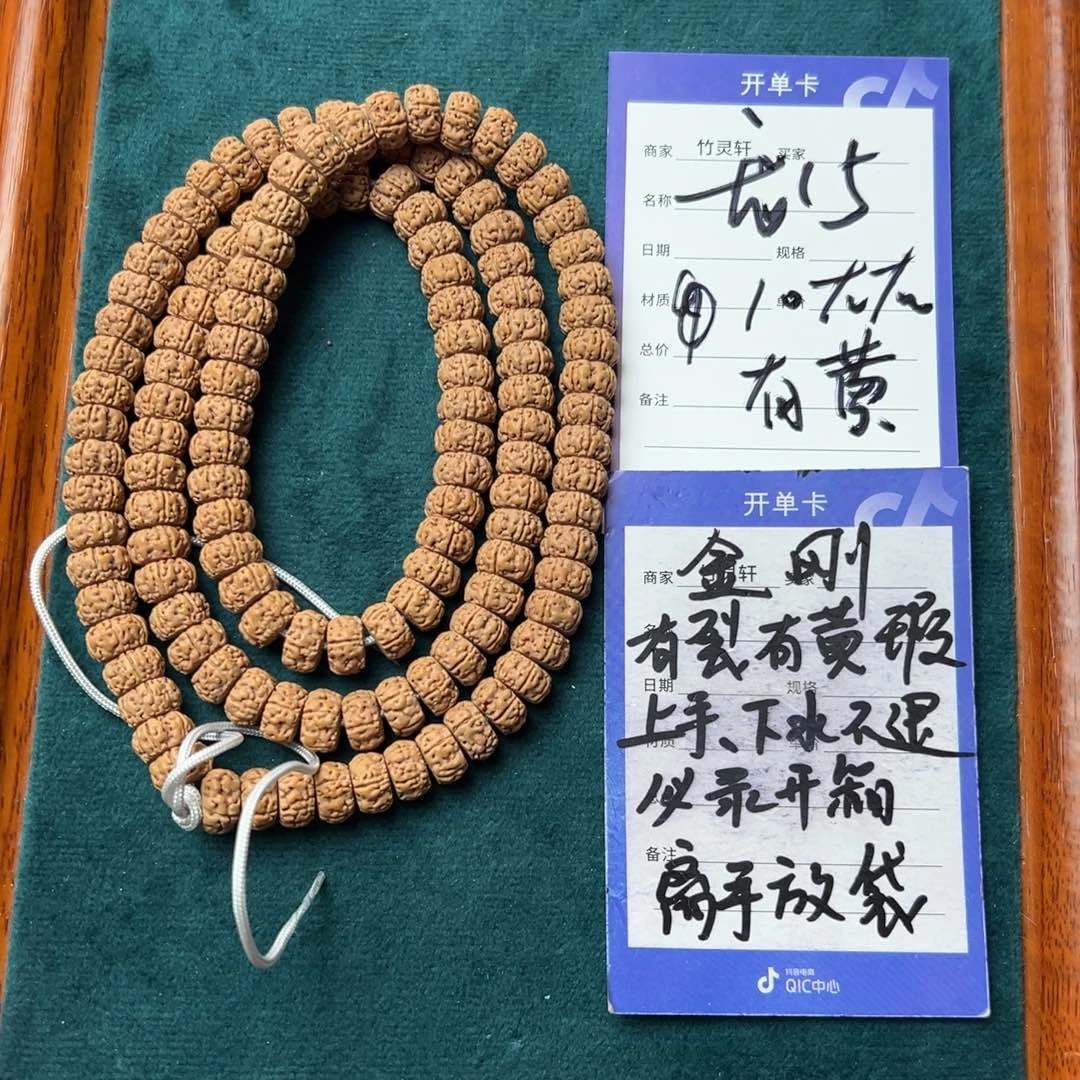 开单卡
商家 竹灵轩 买家
名称
15
日期 规格
材质 单价
总价
有黄
备注
开单卡
金刚
商家 灵轩 买家
有裂有黄瑕
日期 规格
上手、下水不退
材质
必录开箱
备注
离手放袋
抖音电商
QIC中心